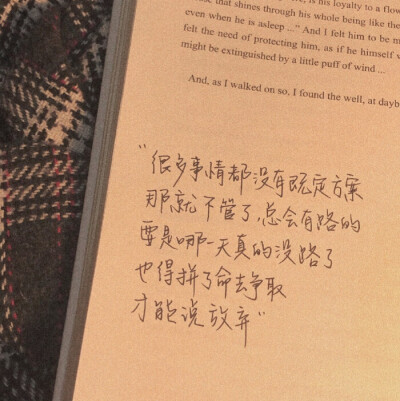 is his loyalty to a flow
that shines through his whole being like the
even when he is asleep ..." And I felt him to be m
felt the need of protecting him, as if he himself
might be extinguished by a little puff of wind ...
And, as I walked on so, I found the well, at dayb
"很多事情都没有既定方案
那就不管了,总会有路的
要是哪一天真的没路了
也得拼了命去争取
才能说放弃"